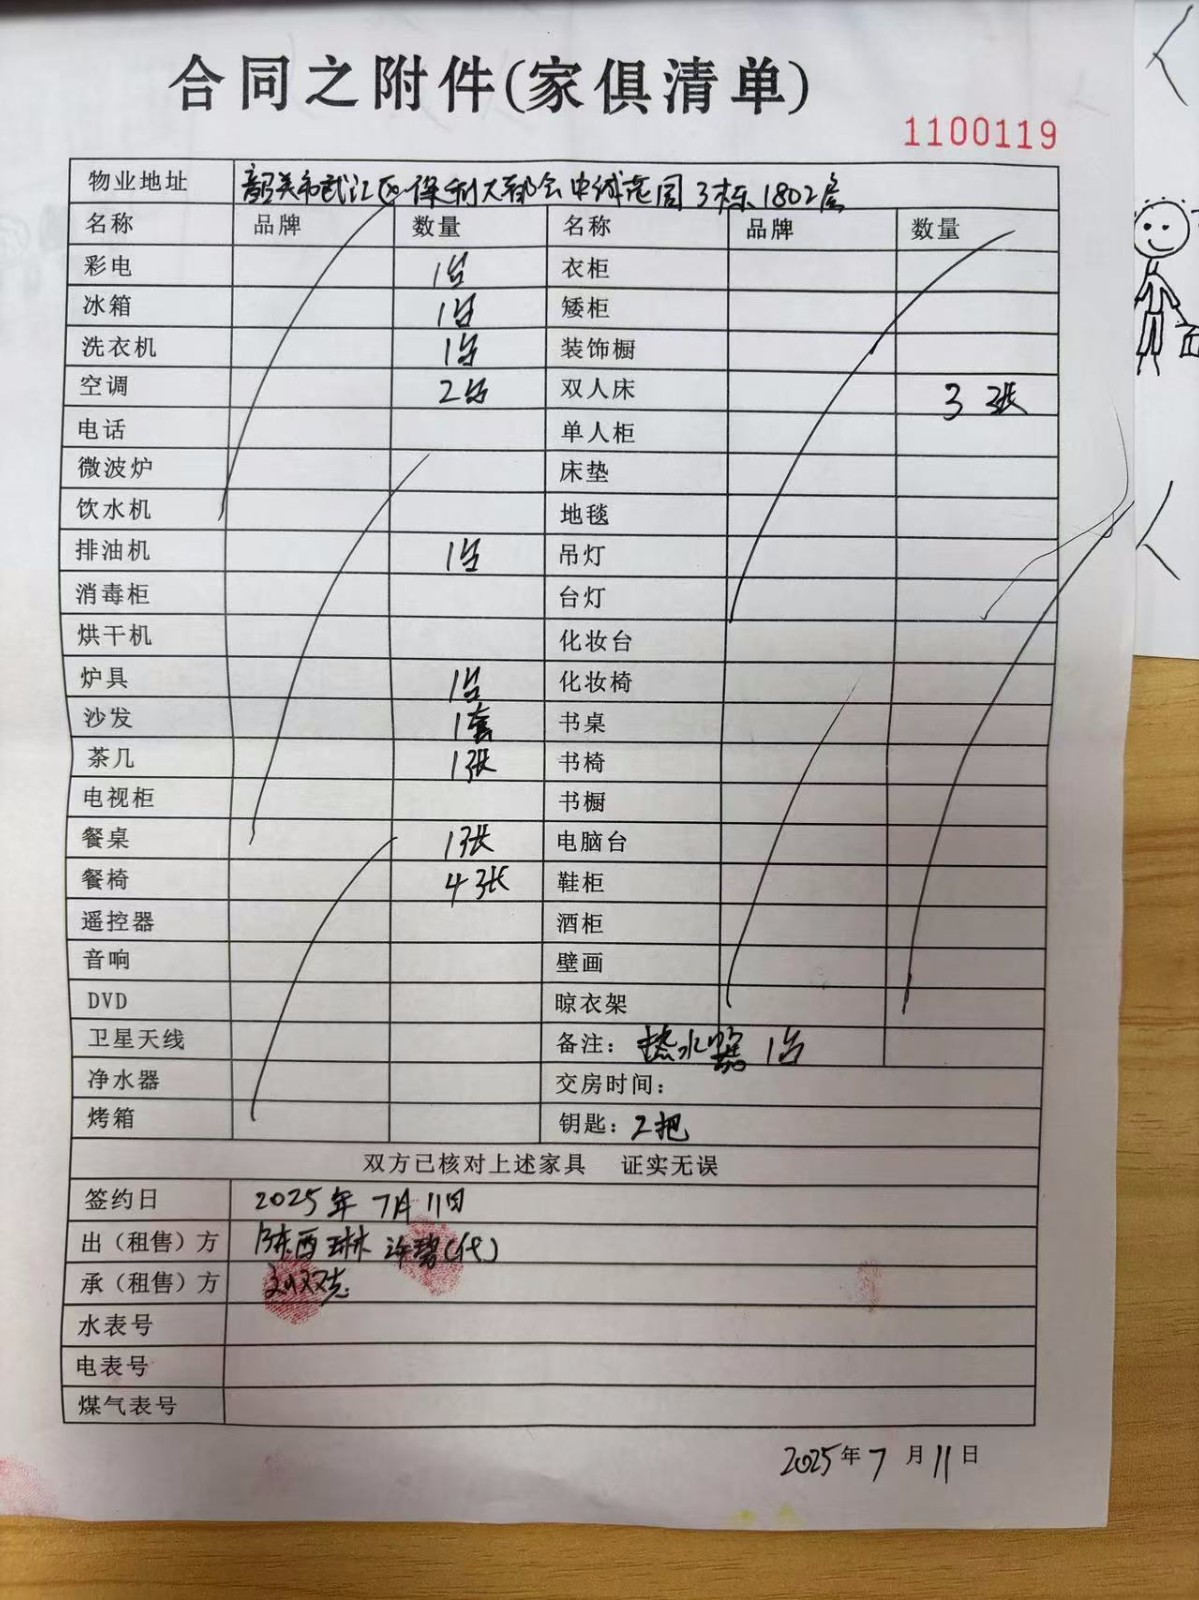 合同之附件(家俱清单)
1100119
物业地址 韶关市武江区保利大都会中诚花园3栋1802房
名称 品牌 数量 名称 品牌 数量
彩电 1台 衣柜
冰箱 1台 矮柜
洗衣机 1台 装饰橱
空调 2台 双人床 3张
电话 单人柜
微波炉 床垫
饮水机 地毯
排油机 1台 吊灯
消毒柜 台灯
烘干机 化妆台
炉具 1台 化妆椅
沙发 1套 书桌
茶几 1张 书椅
电视柜 书橱
餐桌 1张 电脑台
餐椅 4张 鞋柜
遥控器 酒柜
音响 壁画
DVD 晾衣架
卫星天线 备注：热水器 1台
净水器 交房时间：
烤箱 钥匙：2把
双方已核对上述家具 证实无误
签约日 2025年7月11日
出（租售）方 陈西琳 许碧(代)
承（租售）方 刘双志
水表号
电表号
煤气表号
2025年7月11日